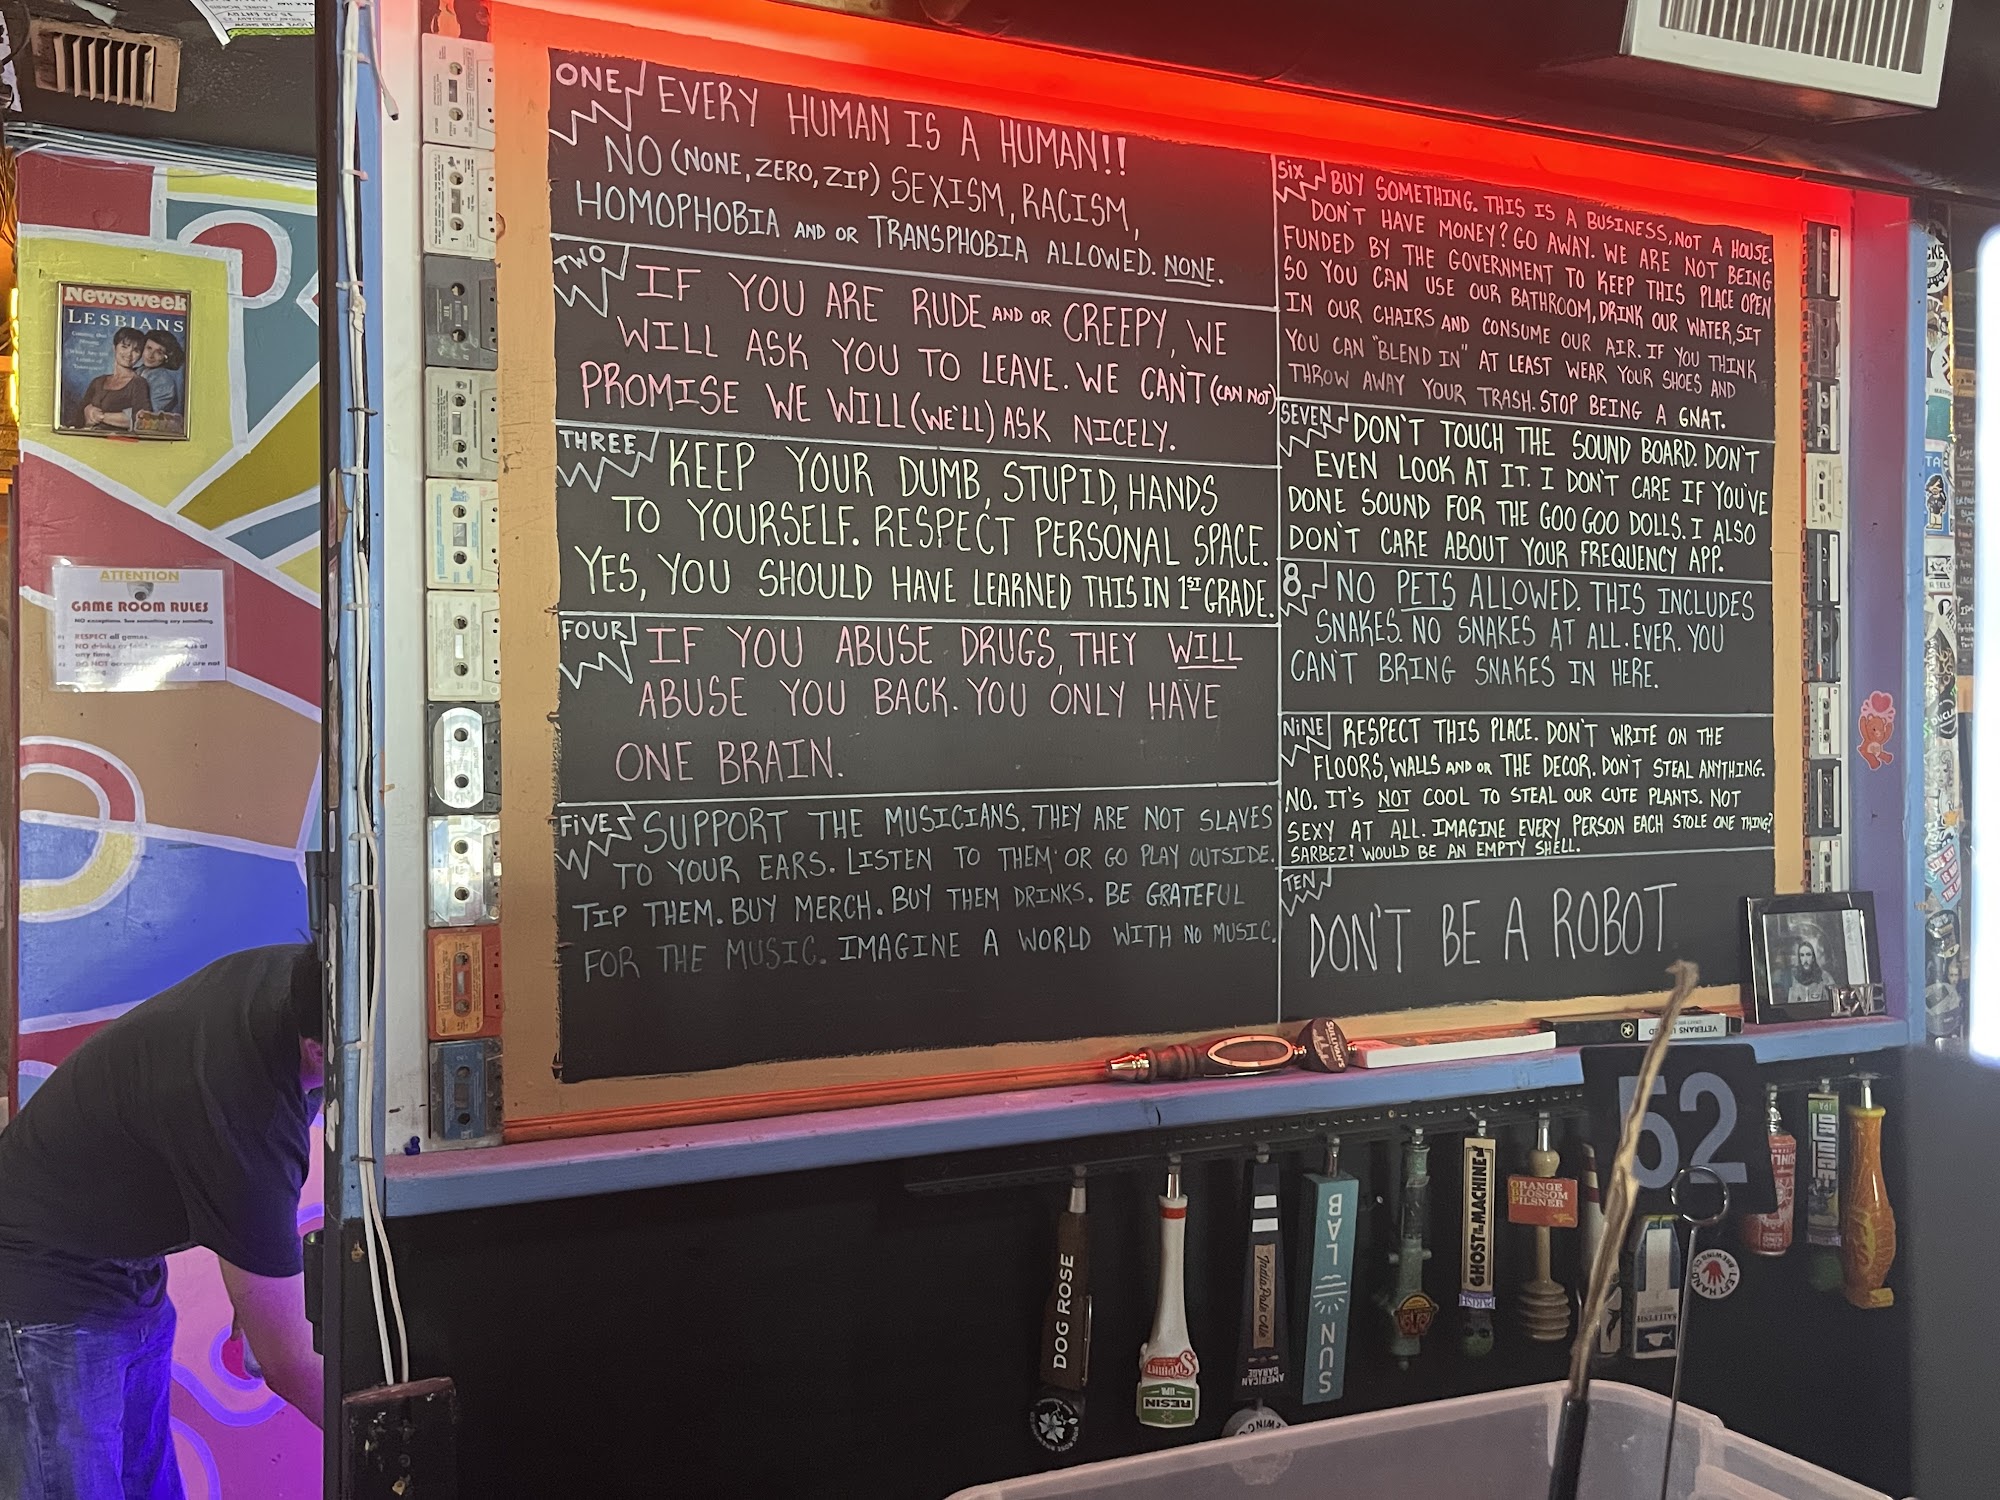 ONE
EVERY HUMAN IS A HUMAN!!
NO (NONE, ZERO, ZIP) SEXISM, RACISM,
HOMOPHOBIA AND OR TRANSPHOBIA ALLOWED. NONE.
TWO
IF YOU ARE RUDE AND OR CREEPY, WE
WILL ASK YOU TO LEAVE. WE CAN'T (CAN NOT)
PROMISE WE WILL (WE'LL) ASK NICELY.
THREE
KEEP YOUR DUMB, STUPID, HANDS
TO YOURSELF. RESPECT PERSONAL SPACE.
YES, YOU SHOULD HAVE LEARNED THIS IN 1ST GRADE.
FOUR
IF YOU ABUSE DRUGS, THEY WILL
ABUSE YOU BACK. YOU ONLY HAVE
ONE BRAIN.
FIVE
SUPPORT THE MUSICIANS. THEY ARE NOT SLAVES
TO YOUR EARS. LISTEN TO THEM OR GO PLAY OUTSIDE.
TIP THEM. BUY MERCH. BUY THEM DRINKS. BE GRATEFUL
FOR THE MUSIC. IMAGINE A WORLD WITH NO MUSIC.
SIX
BUY SOMETHING. THIS IS A BUSINESS, NOT A HOUSE.
DON'T HAVE MONEY? GO AWAY. WE ARE NOT BEING
FUNDED BY THE GOVERNMENT TO KEEP THIS PLACE OPEN
SO YOU CAN USE OUR BATHROOM, DRINK OUR WATER, SIT
IN OUR CHAIRS AND CONSUME OUR AIR. IF YOU THINK
YOU CAN "BLEND IN" AT LEAST WEAR YOUR SHOES AND
THROW AWAY YOUR TRASH. STOP BEING A GNAT.
SEVEN
DON'T TOUCH THE SOUND BOARD. DON'T
EVEN LOOK AT IT. I DON'T CARE IF YOU'VE
DONE SOUND FOR THE GOO GOO DOLLS. I ALSO
DON'T CARE ABOUT YOUR FREQUENCY APP.
8
NO PETS ALLOWED. THIS INCLUDES
SNAKES. NO SNAKES AT ALL. EVER. YOU
CAN'T BRING SNAKES IN HERE.
NINE
RESPECT THIS PLACE. DON'T WRITE ON THE
FLOORS, WALLS AND OR THE DECOR. DON'T STEAL ANYTHING.
NO. IT'S NOT COOL TO STEAL OUR CUTE PLANTS. NOT
SEXY AT ALL. IMAGINE EVERY PERSON EACH STOLE ONE THING?
SARBEZ! WOULD BE AN EMPTY SHELL.
TEN
DON'T BE A ROBOT
Newsweek
LESBIANS
ATTENTION
GAME ROOM RULES
NO exceptions. See something say something.
RESPECT all games.
NO drinks
any time.
DO NOT
SULLIVAN'S
VETERANS
52
DOG ROSE
SIXPOINT
RESIN
India Pale Ale
AMERICAN
GARAGE
SUN LAB
GHOST IN THE MACHINE
PARISH
ORANGE
BLOSSOM
PILSNER
LEFT HAND
BREWING CO.
DR JUICE
IPA